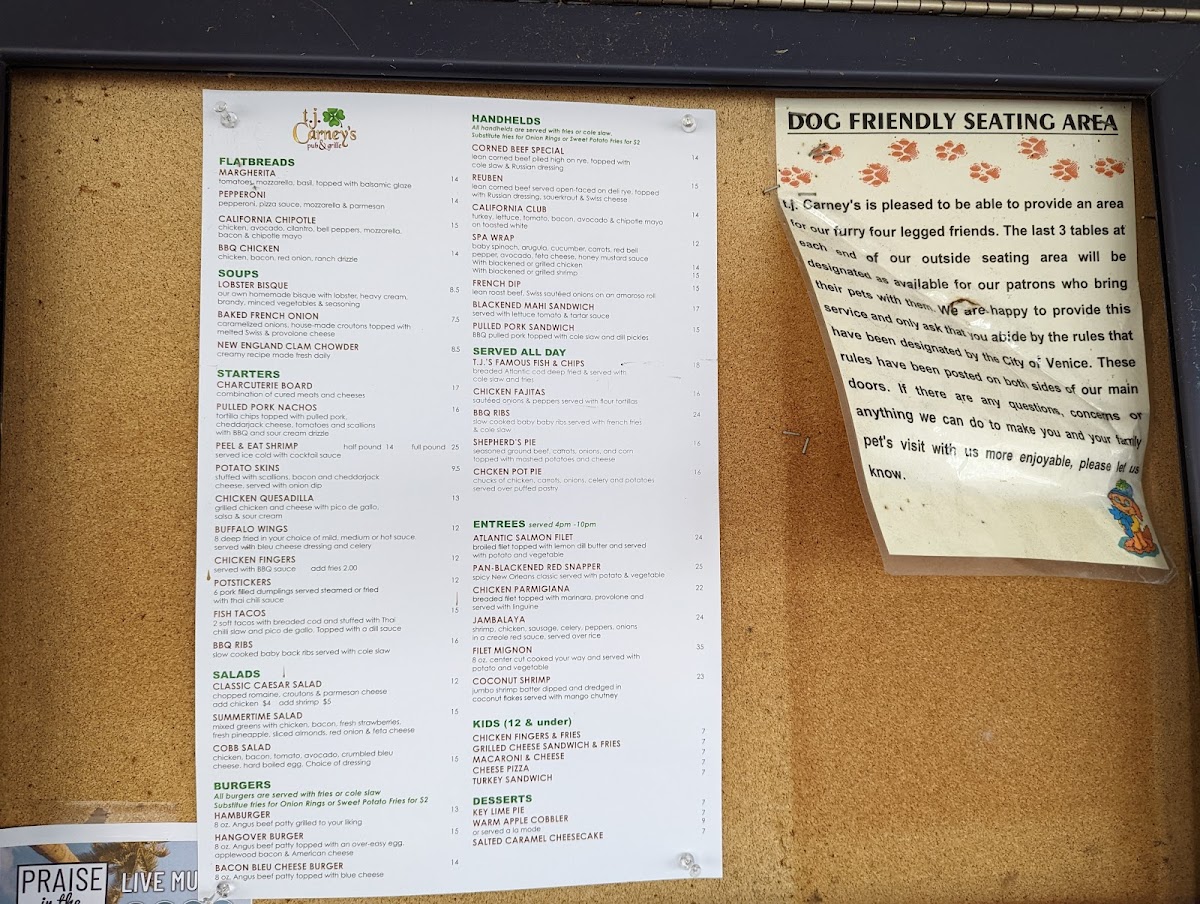 t.j.
Carney's
pub & grille
FLATBREADS
MARGHERITA 14
tomatoes, mozzarella, basil, topped with balsamic glaze
PEPPERONI 14
pepperoni, pizza sauce, mozzarella & parmesan
CALIFORNIA CHIPOTLE 15
chicken, avocado, cilantro, bell peppers, mozzarella,
bacon & chipotle mayo
BBQ CHICKEN 14
chicken, bacon, red onion, ranch drizzle
SOUPS
LOBSTER BISQUE 8.5
our own homemade bisque with lobster, heavy cream,
brandy, minced vegetables & seasoning
BAKED FRENCH ONION 7.5
caramelized onions, house-made croutons topped with
melted Swiss & provolone cheese
NEW ENGLAND CLAM CHOWDER 8.5
creamy recipe made fresh daily
STARTERS
CHARCUTERIE BOARD 17
combination of cured meats and cheeses
PULLED PORK NACHOS 16
tortilla chips topped with pulled pork,
cheddarjack cheese, tomatoes and scallions
with BBQ and sour cream drizzle
PEEL & EAT SHRIMP half pound 14 full pound 25
served ice cold with cocktail sauce
POTATO SKINS 9.5
stuffed with scallions, bacon and cheddarjack
cheese, served with onion dip
CHICKEN QUESADILLA 13
grilled chicken and cheese with pico de gallo,
salsa & sour cream
BUFFALO WINGS 12
8 deep fried in your choice of mild, medium or hot sauce
served with bleu cheese dressing and celery
CHICKEN FINGERS 12
served with BBQ sauce add fries 2.00
POTSTICKERS 12
6 pork filled dumplings served steamed or fried
with thai chili sauce
FISH TACOS 15
2 soft tacos with breaded cod and stuffed with Thai
chili slaw and pico de gallo. Topped with a dill sauce
BBQ RIBS 16
slow cooked baby back ribs served with cole slaw
SALADS
CLASSIC CAESAR SALAD 12
chopped romaine, croutons & parmesan cheese
add chicken $4 add shrimp $5
SUMMERTIME SALAD 15
mixed greens with chicken, bacon, fresh strawberries,
fresh pineapple, sliced almonds, red onion & feta cheese
COBB SALAD 15
chicken, bacon, tomato, avocado, crumbled bleu
cheese, hard boiled egg. Choice of dressing
BURGERS
All burgers are served with fries or cole slaw
Substitue fries for Onion Rings or Sweet Potato Fries for $2
HAMBURGER 13
8 oz. Angus beef patty grilled to your liking
HANGOVER BURGER 15
8 oz. Angus beef patty topped with an over-easy egg,
applewood bacon & American cheese
BACON BLEU CHEESE BURGER 14
8 oz. Angus beef patty topped with blue cheese
HANDHELDS
All handhelds are served with fries or cole slaw.
Substitute fries for Onion Rings or Sweet Potato Fries for $2
CORNED BEEF SPECIAL 14
lean corned beef piled high on rye, topped with
cole slaw & Russian dressing
REUBEN 15
lean corned beef served open-faced on deli rye, topped
with Russian dressing, sauerkraut & Swiss cheese
CALIFORNIA CLUB 14
turkey, lettuce, tomato, bacon, avocado & chipotle mayo
on toasted white
SPA WRAP 12
baby spinach, arugula, cucumber, carrots, red bell
pepper, avocado, feta cheese, honey mustard sauce
With blackened or grilled chicken 14
With blackened or grilled shrimp 15
FRENCH DIP 15
lean roast beef, Swiss sautéed onions on an amaroso roll
BLACKENED MAHI SANDWICH 17
served with lettuce tomato & tartar sauce
PULLED PORK SANDWICH 15
BBQ pulled pork topped with cole slaw and dill pickles
SERVED ALL DAY
T.J.'S FAMOUS FISH & CHIPS 18
breaded Atlantic cod deep fried & served with
cole slaw and fries
CHICKEN FAJITAS 16
sautéed onions & peppers served with flour tortillas
BBQ RIBS 24
slow cooked baby baby ribs served with french fries
& cole slaw
SHEPHERD'S PIE 16
seasoned ground beef, carrots, onions, and corn
topped with mashed potatoes and cheese
CHCKEN POT PIE 16
chucks of chicken, carrots, onions, celery and potatoes
served over puffed pastry
ENTREES served 4pm -10pm
ATLANTIC SALMON FILET 24
broiled filet topped with lemon dill butter and served
with potato and vegetable
PAN-BLACKENED RED SNAPPER 25
spicy New Orleans classic served with potato & vegetable
CHICKEN PARMIGIANA 22
breaded filet topped with marinara, provolone and
served with linguine
JAMBALAYA 24
shrimp, chicken, sausage, celery, peppers, onions
in a creole red sauce, served over rice
FILET MIGNON 35
8 oz. center cut cooked your way and served with
potato and vegetable
COCONUT SHRIMP 23
jumbo shrimp batter dipped and dredged in
coconut flakes served with mango chutney
KIDS (12 & under)
CHICKEN FINGERS & FRIES 7
GRILLED CHEESE SANDWICH & FRIES 7
MACARONI & CHEESE 7
CHEESE PIZZA 7
TURKEY SANDWICH 7
DESSERTS
KEY LIME PIE 7
WARM APPLE COBBLER 7
or served a la mode 9
SALTED CARAMEL CHEESECAKE 7
DOG FRIENDLY SEATING AREA
t.j. Carney's is pleased to be able to provide an area
for our furry four legged friends. The last 3 tables at
each end of our outside seating area will be
designated as available for our patrons who bring
their pets with them. We are happy to provide this
service and only ask that you abide by the rules that
have been designated by the City of Venice. These
rules have been posted on both sides of our main
doors. If there are any questions, concerns or
anything we can do to make you and your family
pet's visit with us more enjoyable, please let us
know.
PRAISE
in the
LIVE MU